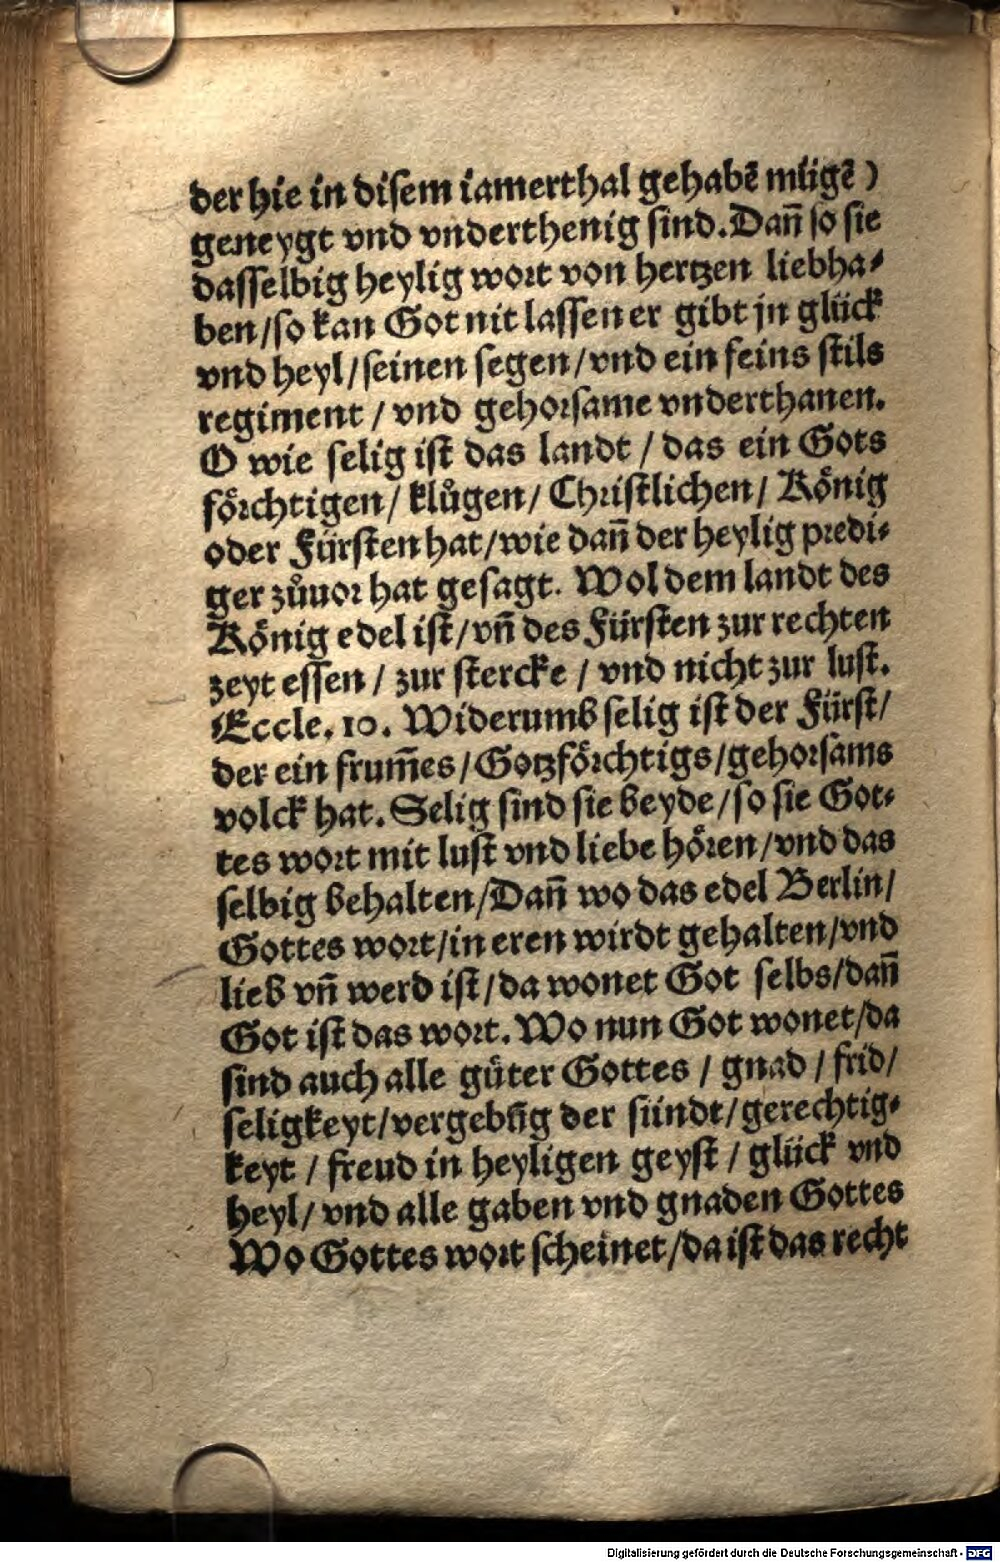 der hie in disem iamerthal gehabẽ mügẽ)
geneygt vnd vnderthenig sind. Dañ so sie
dasselbig heylig wort von hertzen liebha⸗
ben/so kan Got nit lassen er gibt jn glück
vnd heyl/seinen segen/vnd ein feins stils
regiment / vnd gehorsame vnderthanen.
O wie selig ist das landt / das ein Gots
förchtigen/ klůgen/ Christlichen/ König
oder Fürsten hat/wie dañ der heylig predi⸗
ger zůuor hat gesagt. Wol dem landt des
König edel ist/vñ des Fürsten zur rechten
zeyt essen / zur stercke / vnd nicht zur lust.
Eccle. 10. Widerumb selig ist der Fürst/
der ein frum̃es/Gotzförchtigs/gehorsams
volck hat. Selig sind sie beyde/so sie Got⸗
tes wort mit lust vnd liebe hören/vnd das
selbig behalten/Dañ wo das edel Berlin/
Gottes wort/in eren wirdt gehalten/vnd
lieb vñ werd ist/da wonet Got selbs/dañ
Got ist das wort. Wo nun Got wonet/da
sind auch alle güter Gottes / gnad / frid/
seligkeyt/vergebũg der sündt/gerechtig⸗
keyt / freud in heyligen geyst / glück vnd
heyl/ vnd alle gaben vnd gnaden Gottes
Wo Gottes wort scheinet/da ist das recht
Digitalisierung gefördert durch die Deutsche Forschungsgemeinschaft - DFG